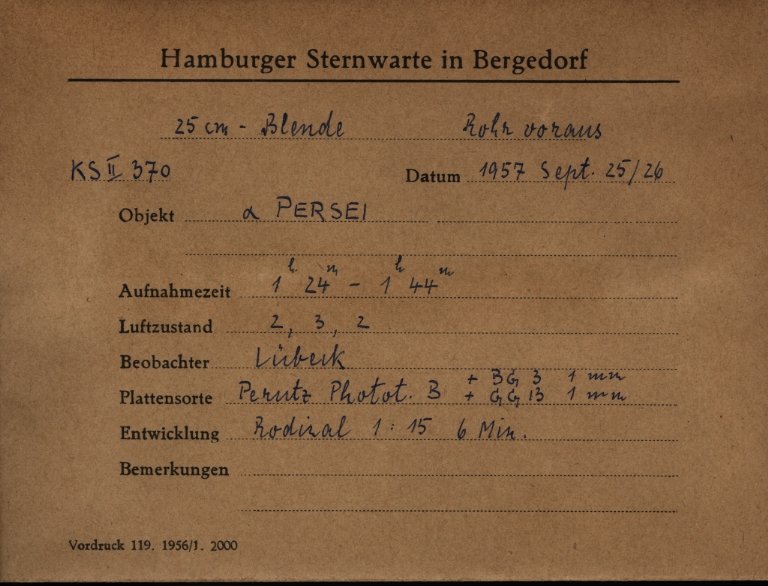 Hamburger Sternwarte in Bergedorf
25 cm - Blende Rohr voraus
KS II 370 Datum 1957 Sept. 25/26
Objekt α PERSEI
Aufnahmezeit 1h 24m - 1h 44m
Luftzustand 2, 3, 2
Beobachter Lübeck
+ BG 3 1 mm
Plattensorte Perutz Photot. B + GG 13 1 mm
Entwicklung Rodinal 1:15 6 Min.
Bemerkungen
Vordruck 119. 1956/1. 2000